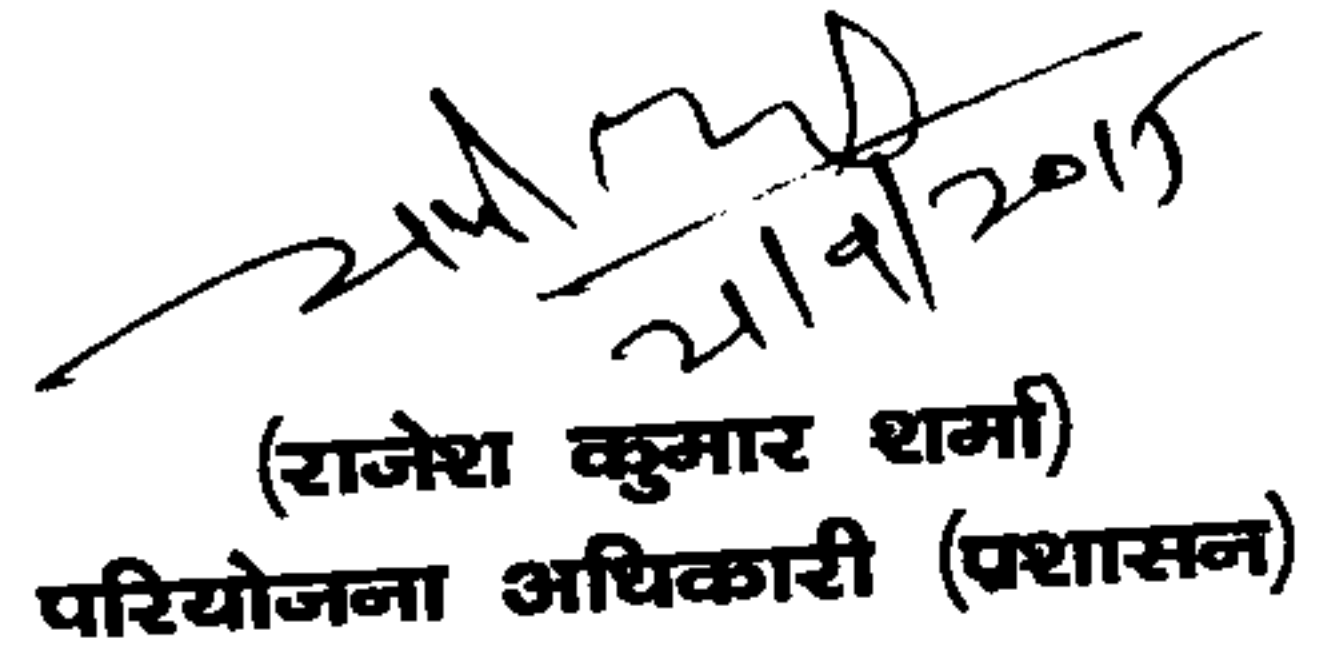 21/9/2015
(राजेश कुमार शर्मा)
परियोजना अधिकारी (प्रशासन)